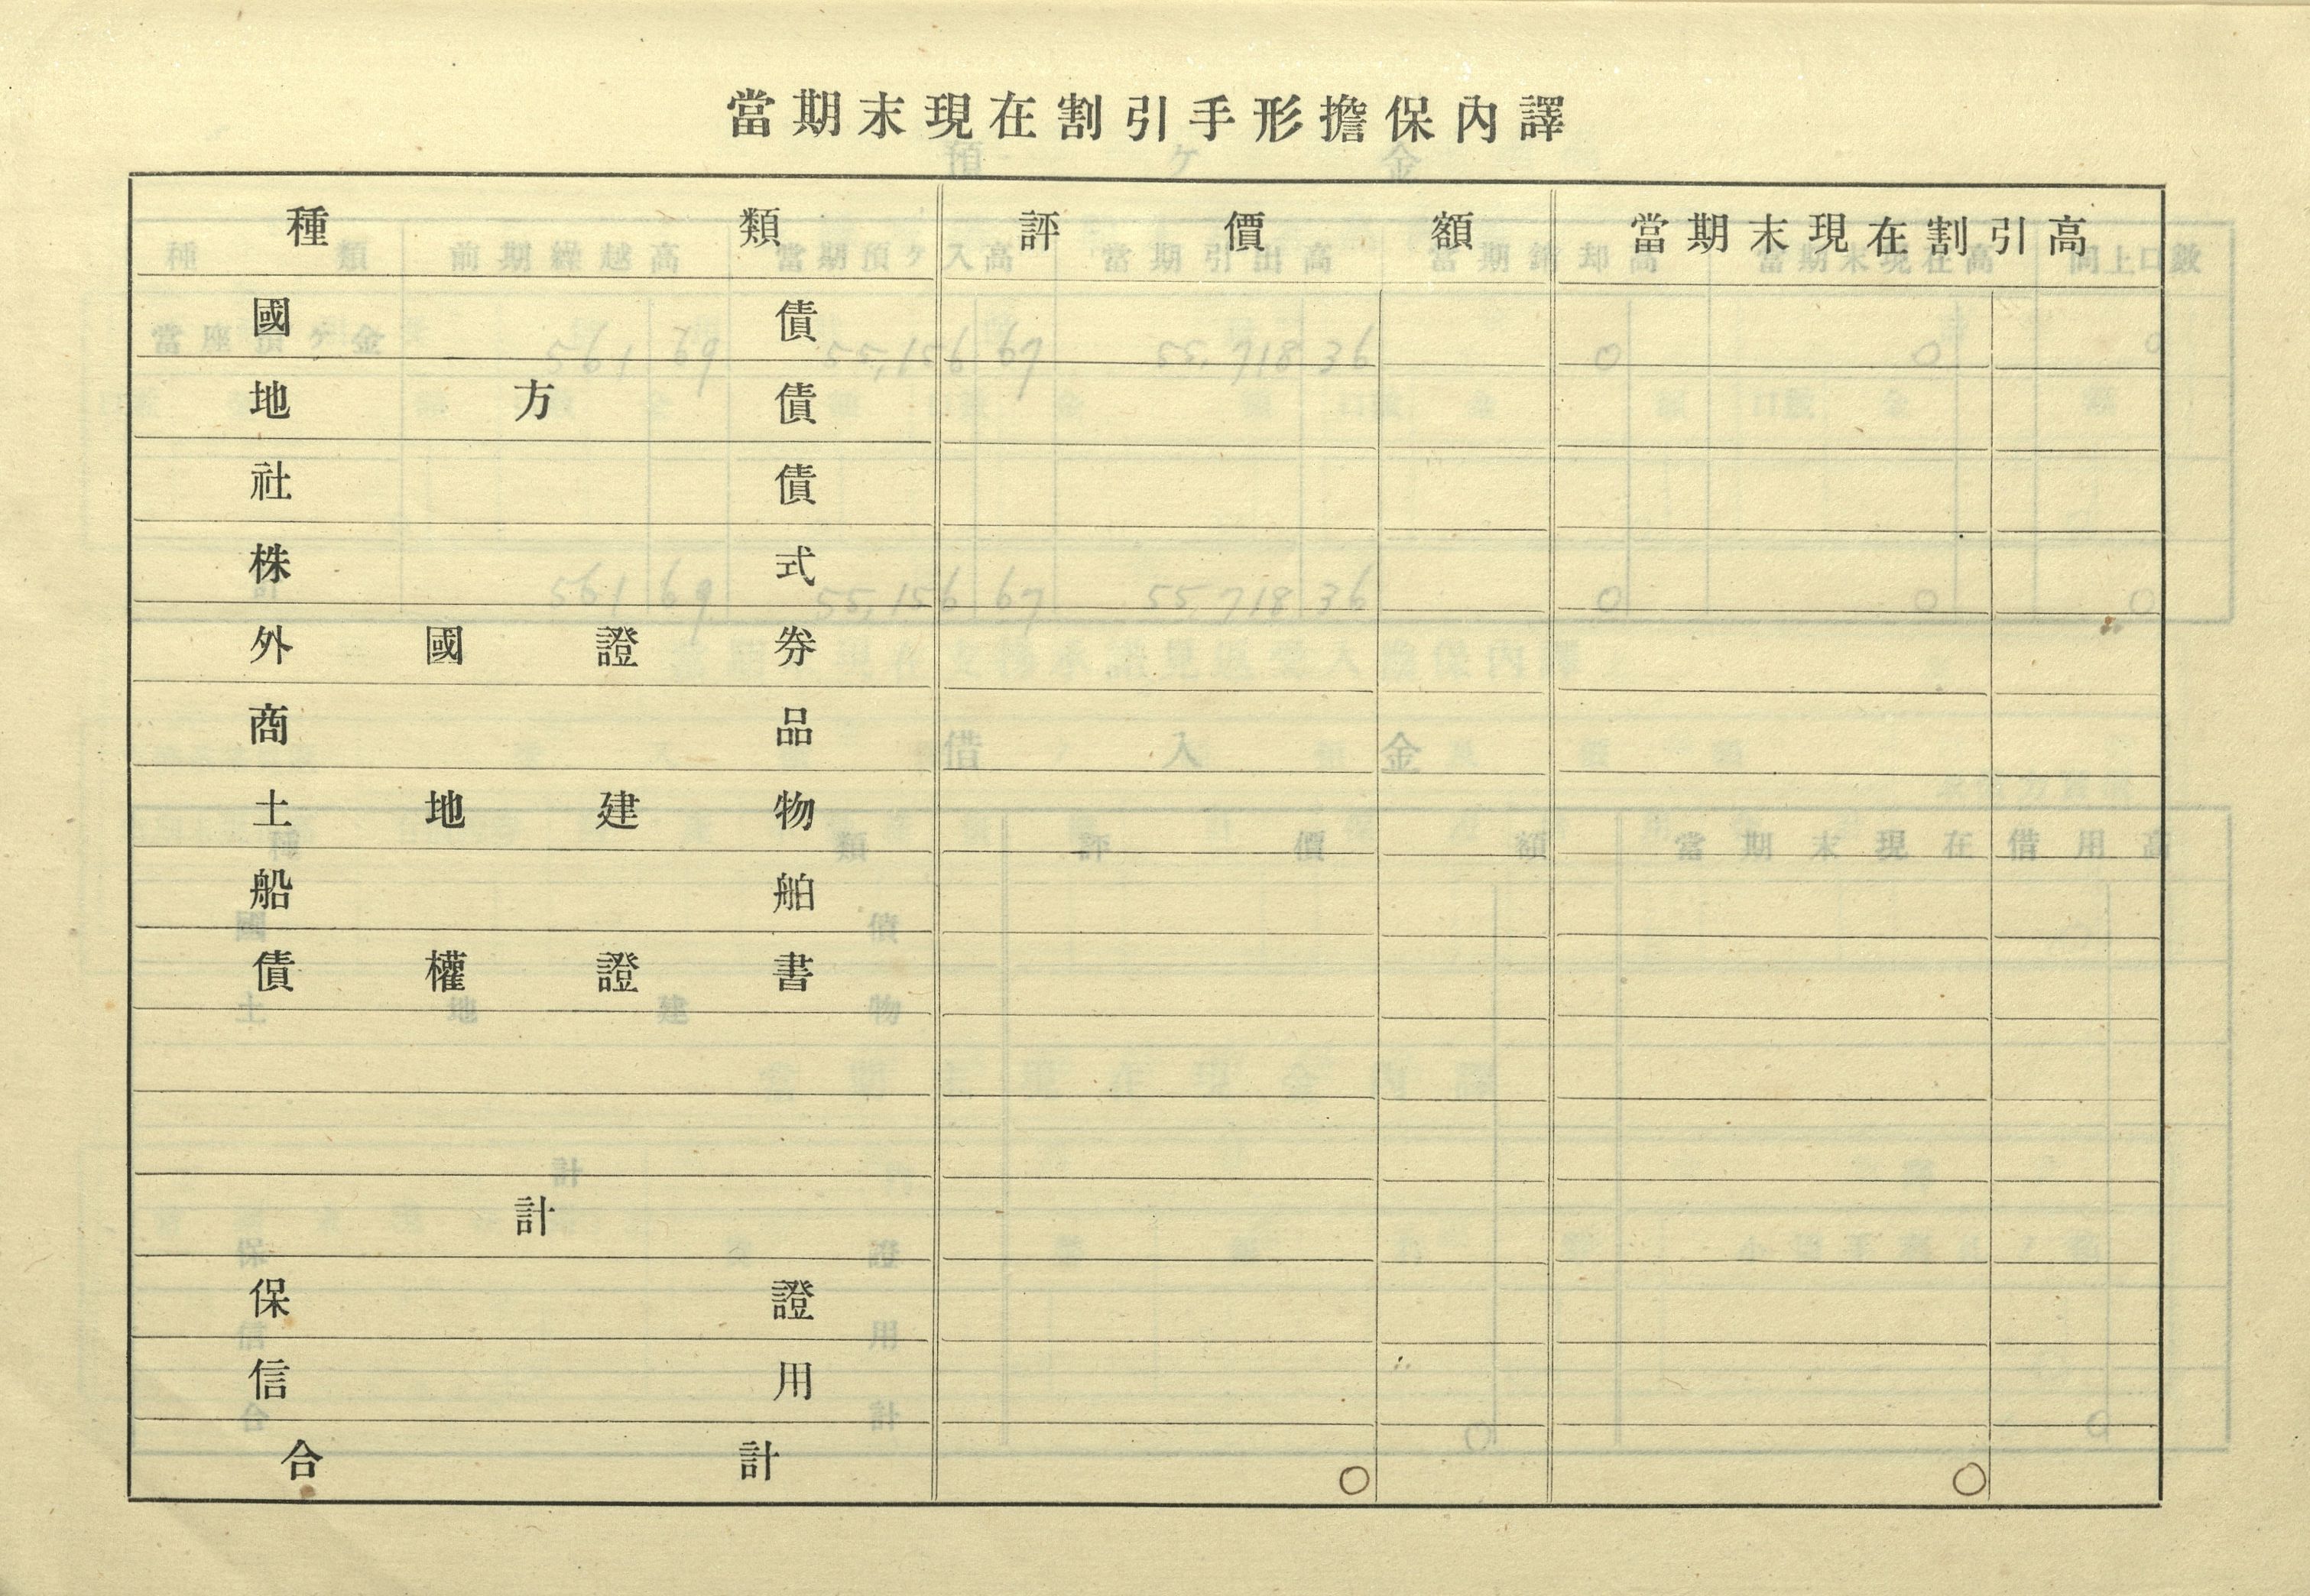 當期末現在割引手形擔保內譯
種類 評價額 當期末現在割引高
國債
地方債
社債
株式
外國證券
商品
土地建物
船舶
債權證書
計
保證
信用
合計 0 0